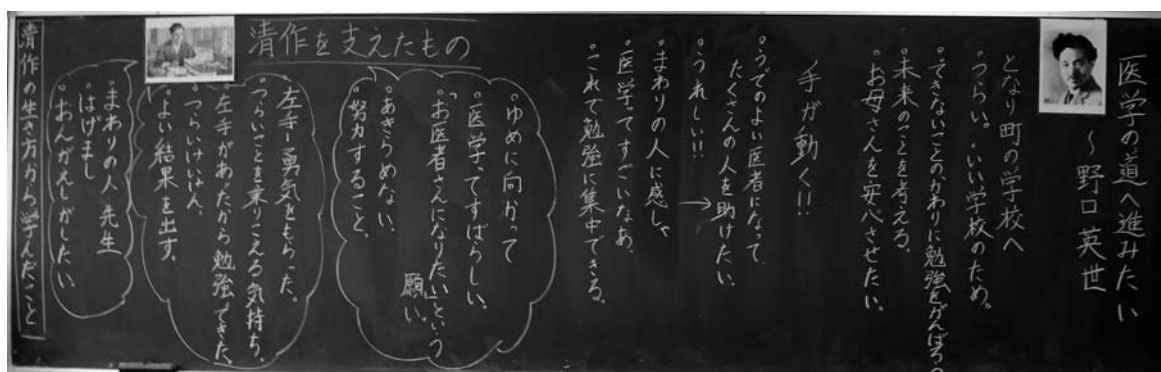 医学の道へ進みたい
～野口英世
となり町の学校へ
・つらい。・いい学校のため。
・できないことのかわりに勉強をがんばろう
・未来のことを考える。
・お母さんを安心させたい。
手が動く!!
・うでのよい医者になって、
たくさんの人を助けたい。
・うれしい!! →
・まわりの人に感しゃ
・医学ってすごいなあ。
・これで勉強に集中できる。
清作を支えたもの
・ゆめに向かって
・医学ってすばらしい。
・「お医者さんになりたい」という
願い。
・あきらめない。
・努力すること。
左手→勇気をもらった。
・つらいことを乗りこえる気持ち。
左手があったから勉強できた。
・つらいけいけん。
・よい結果を出す。
・まわりの人、先生
・はげまし
・おんがえしがしたい
清作の生き方から学んだこと